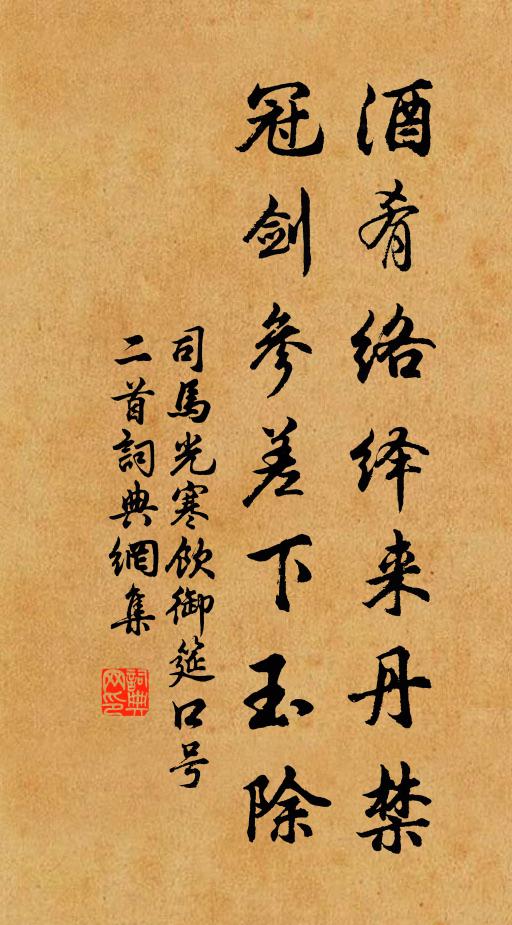 酒肴络绎来丹禁
冠剑参差下玉除
司馬光寒飲御筵口号
二首詞典網集
詞典网印